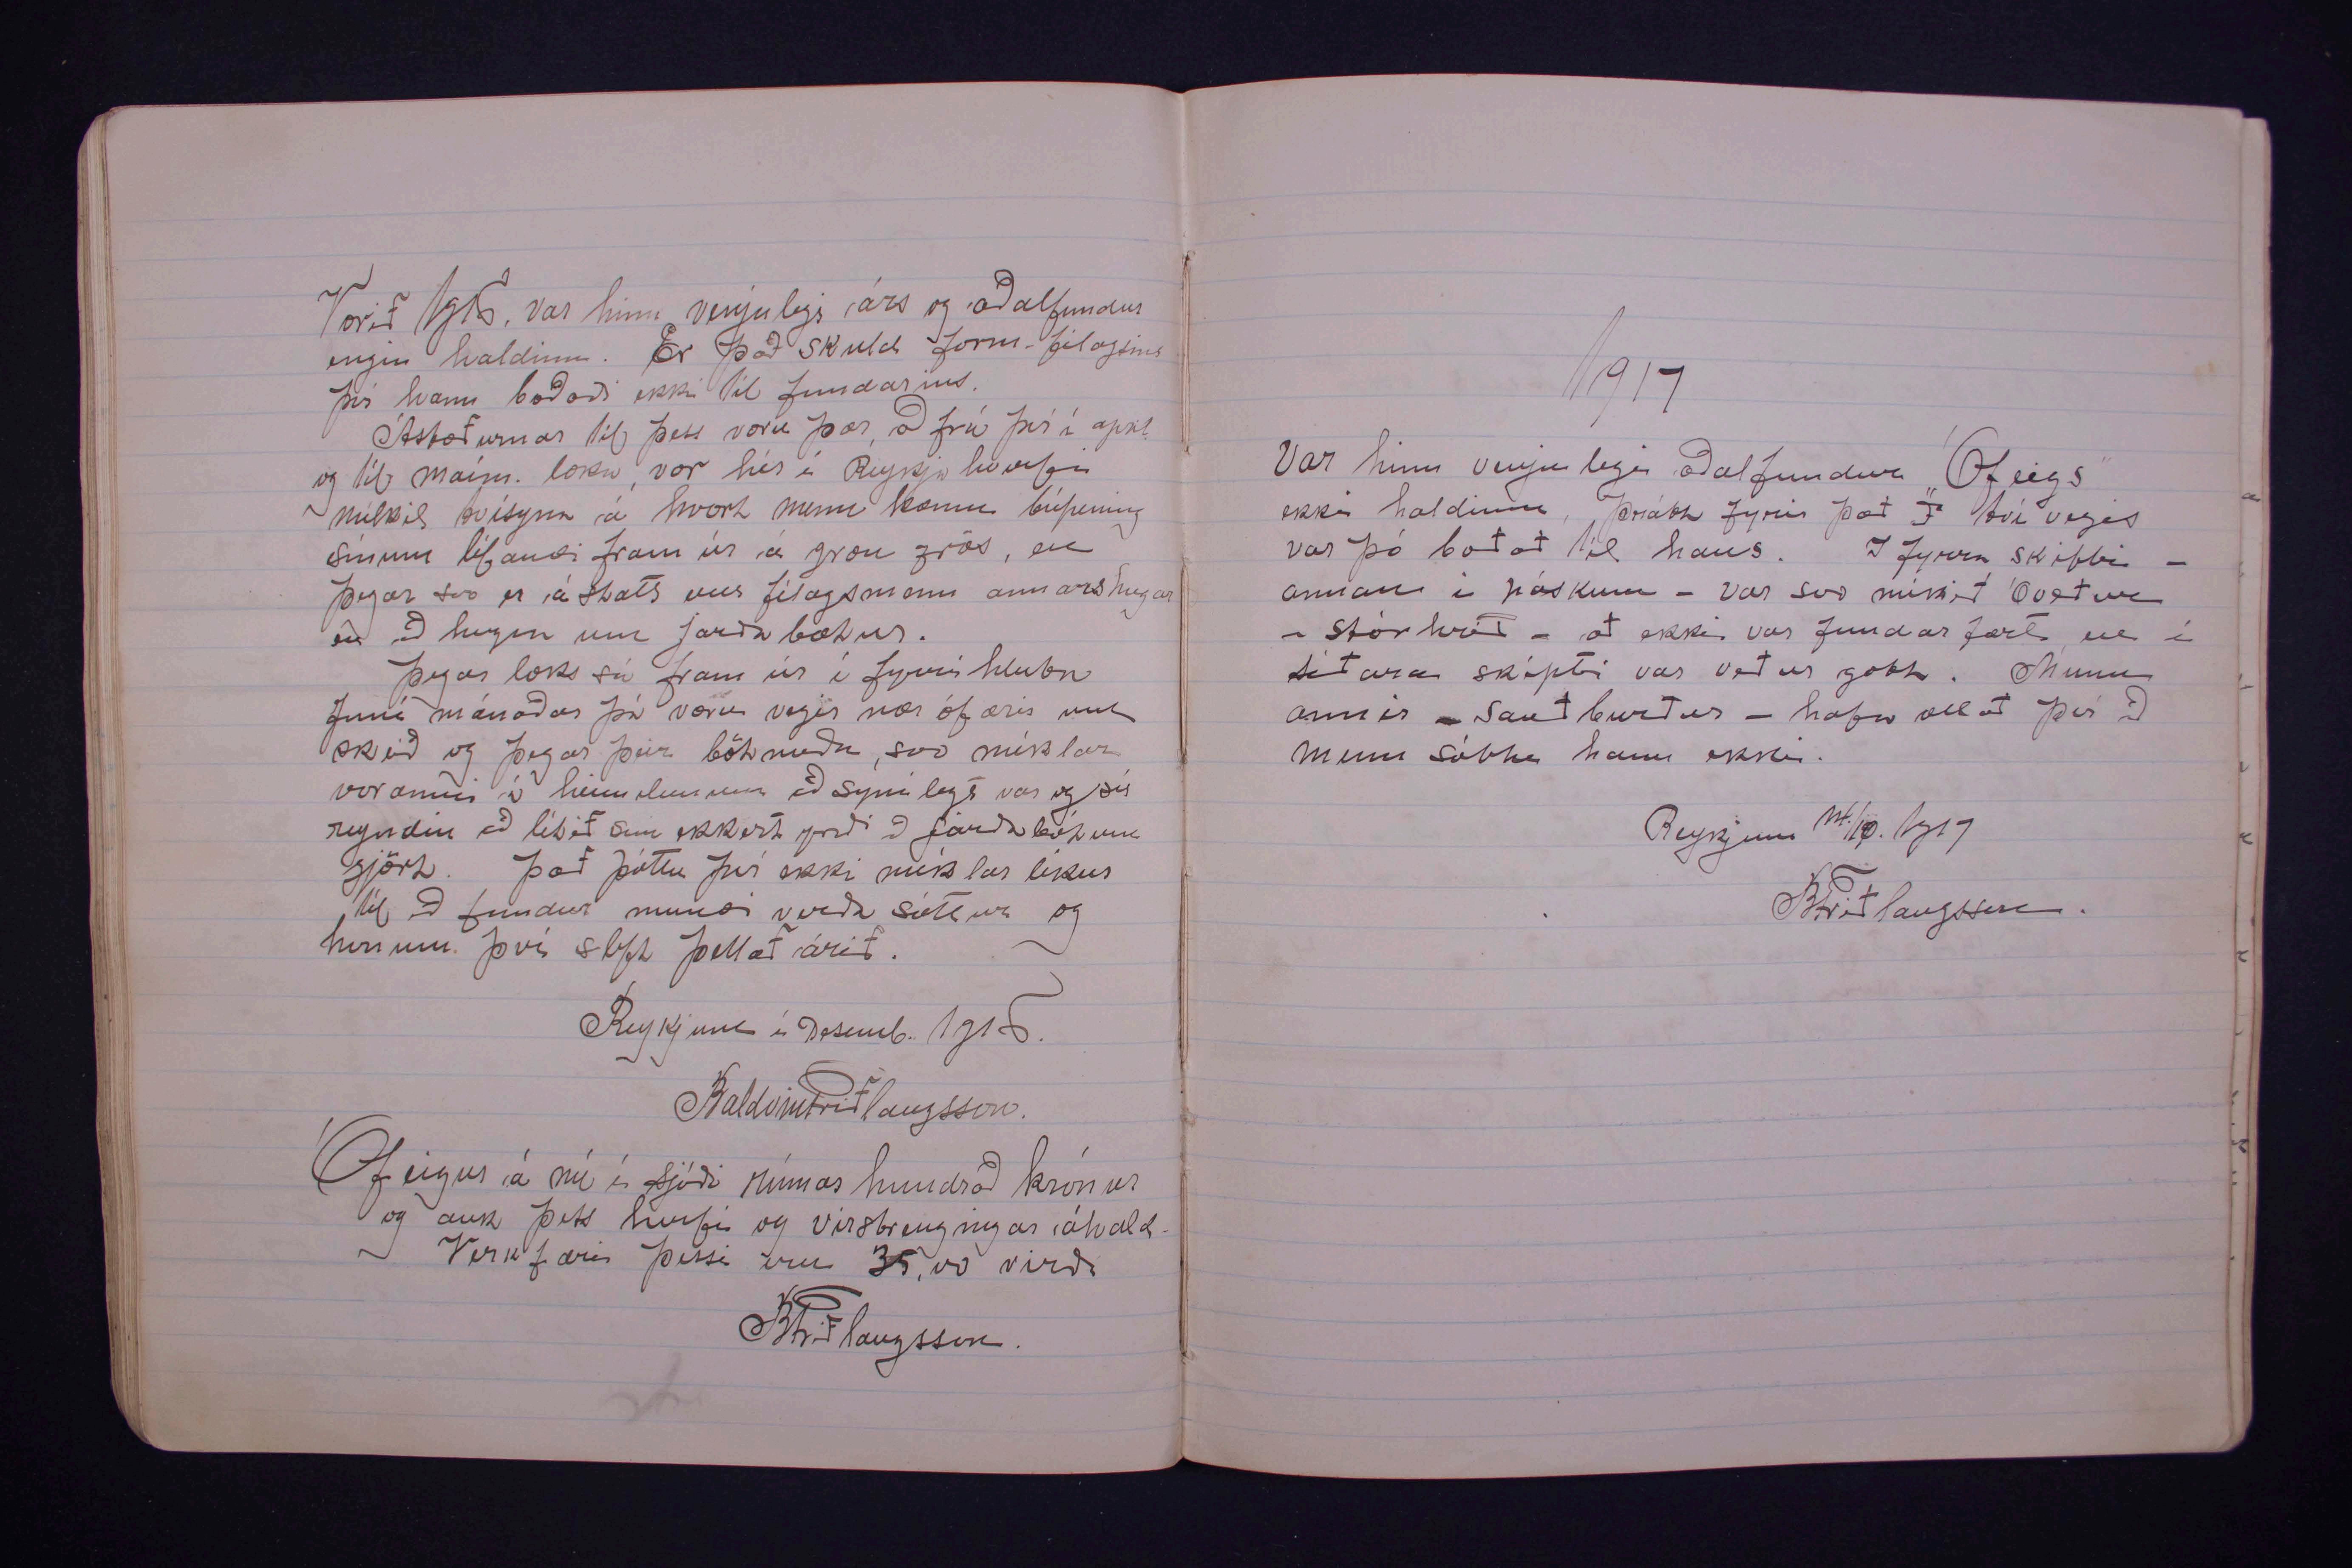 Vorið 1916. var hinn venjulegi árs og aðalfundur
engin haldinn. Er það skuld form. félagsins
því hann boðaði ekki til fundarins.
Ástæðurnar til þess voru þær, að frá því í apríl
og til maím. loka, var hér í Reykjahverfi
mikil tvísýna á hvort menn kæmu búpening
sínum lifandi fram úr á græn grös, en
þegar svo er ástatt eru félagsmenn annars hugar
en að hugsa um jarðabætur.
Þegar loks sá fram úr í fyrri hluta
Júní mánaðar þá voru vegir nær ófærir um
skeið og þegar þeir bötnuðu, svo miklar
vorannir á heimilunum að sýnilegt var og
reyndin að lítið sem ekkert yrði að jarðabótum
gjört. Það þóttu því ekki miklar líkur
til að fundur mundi verða sóttur og
honum því slept þettað árið.
Reykjum í Desemb. 1916.
Baldvin Friðlaugsson.
Ófeigur á nú í sjóði hundrað krónur
og auk þess herfi og vírstrengingar áhald.
Verkfæri þessi eru 35,00 virði
BFriðlaugsson.
1917
Var hinn venjulegi aðalfundur "Ófeigs"
ekki haldinn, þrátt fyrir það tví vegis
var þó boðað til hans. I fyrra skifti -
annan í páskum - var svo mikið óveður
- Stórhríð - að ekki var fundarfært en í
síðara skipti var veður gott. Munu
annir - Sauðburður - hafa ollað því að
menn sóttu hann ekki.
Reykjum 1917
BFriðlaugsson.